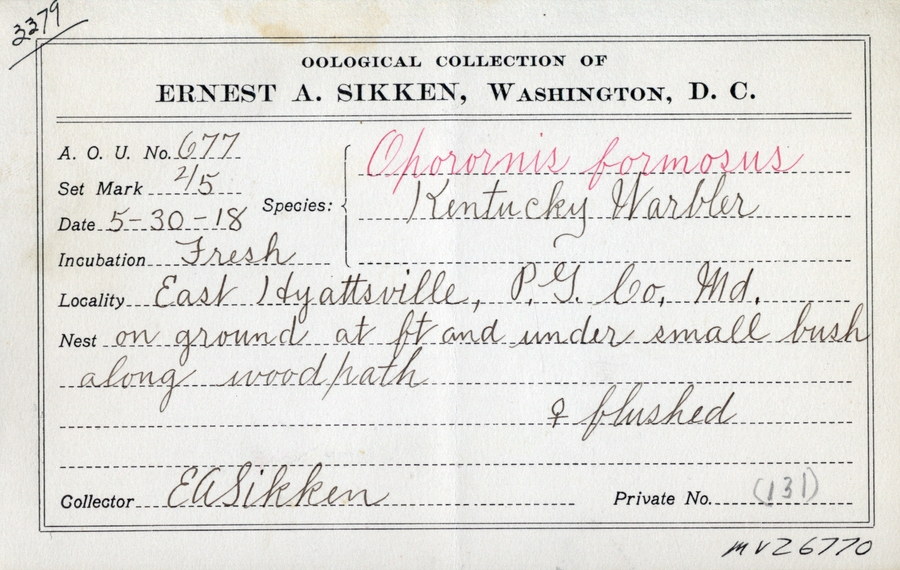 3379
OOLOGICAL COLLECTION OF
ERNEST A. SIKKEN, WASHINGTON, D. C.
A. O. U. No. 677
Set Mark 2/5
Date 5-30-18
Incubation Fresh
Species: Oporornis formosus
Kentucky Warbler
Locality East Hyattsville, P.G. Co. Md.
Nest on ground at ft and under small bush
along wood path
♀ flushed
Collector EASikken
Private No. (131)
MVZ6770